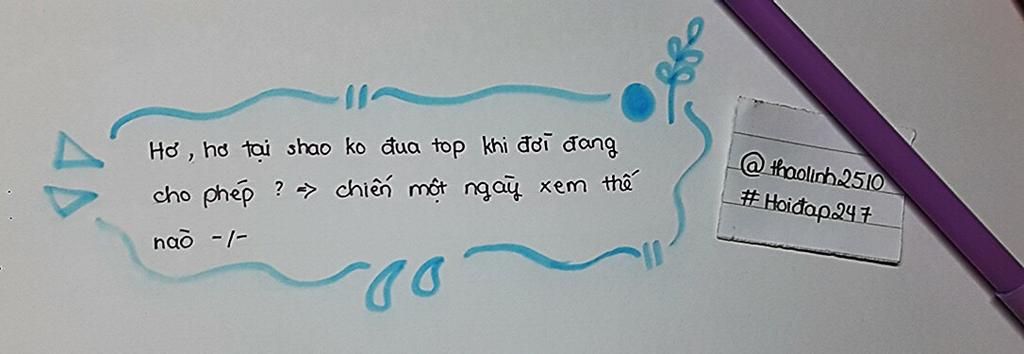 Hơ, hơ tại shao ko đua top khi đời đang
cho phép ? => chiến một ngày xem thế
nào -/-
@thaolinh2510
#Hoiđap247